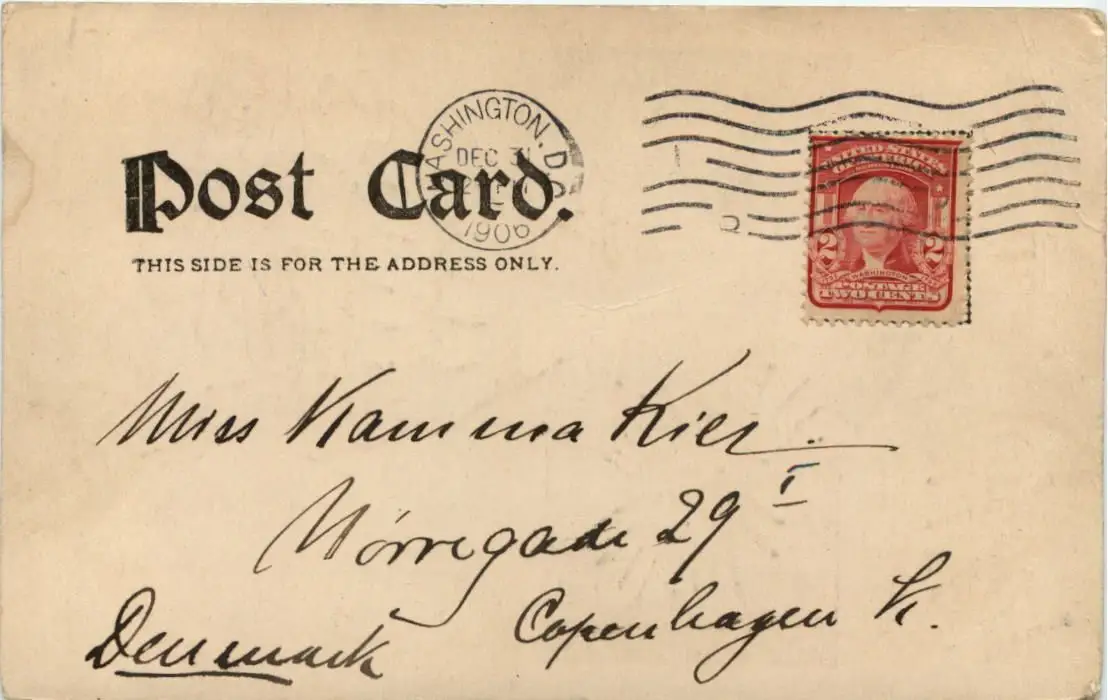 Post Card.
THIS SIDE IS FOR THE ADDRESS ONLY.
WASHINGTON, D.C.
DEC 31
1906
UNITED STATES
OF AMERICA
2 2
WASHINGTON
POSTAGE
TWO CENTS
Miss Kamma Kier.
Nørregade 29 I
Copenhagen K.
Denmark